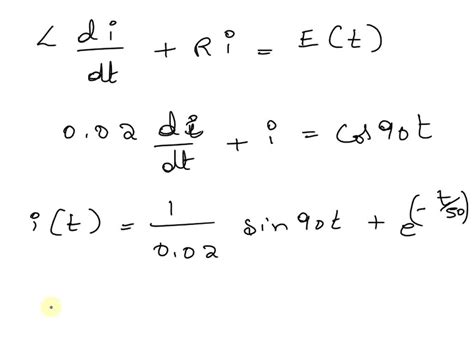 L di/dt + Ri = E(t)
0.02 di/dt + i = cos90t
i(t) = 1/0.02 sin90t + e^(-t/50)